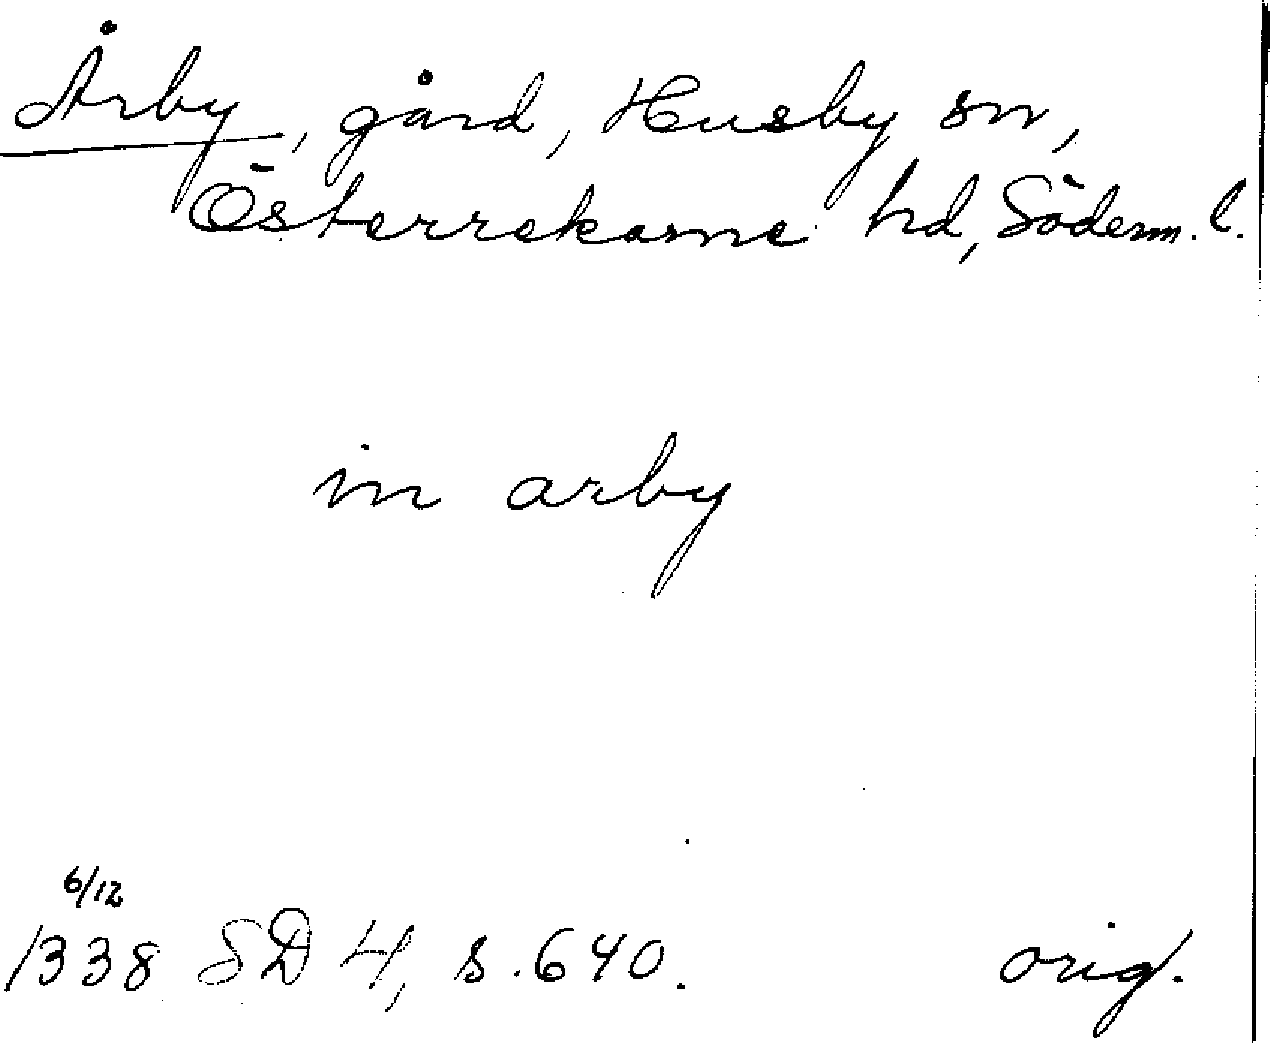 Årby, gård, Husby sn,
Österrekarne hd, Söderm. l.
in arby
6/12
1338 SD 4, s. 640. orig.